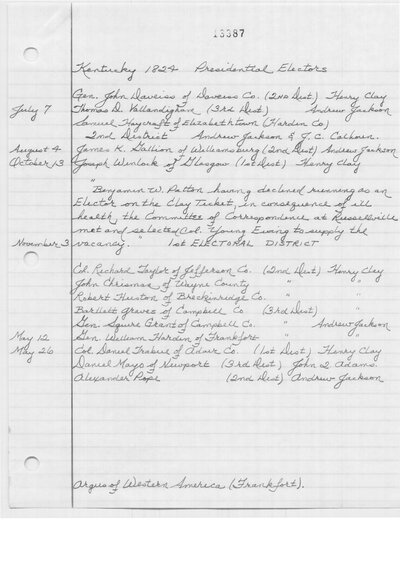 13387
Kentucky 1824 Presidential Electors
Gen. John Daveiss of Daveiss Co. (2nd Dist) Henry Clay
July 7 Thomas D. Vallandigham (3rd Dist) Andrew Jackson
Samuel Haycraft of Elizabethtown (Harden Co)
2nd District Andrew Jackson & J. C. Calhoun.
August 4 James K. Gallion of Williamsburg (2nd Dist) Andrew Jackson
October 13 Joseph Winlock of Glasgow (1st Dist) Henry Clay
"Benjamin W. Patton having declined running as an
Elector on the Clay Ticket, in consequence of ill
health, the Committee of Correspondence at Russellville
met and selected Col. Young Ewing to supply the
November 3 vacancy." 1st ELECTORAL DISTRICT
Col. Richard Taylor of Jefferson Co. (2nd Dist) Henry Clay
John Chrisman of Wayne County " "
Robert Huston of Breckinridge Co. " "
Bartlett Graves of Campbell Co (3rd Dist) "
Gen. Squire Grant of Campbell Co. " Andrew Jackson
May 12 Gen. William Harden of Frankfort " "
May 26 Col. Daniel Trabue of Adair Co. (1st Dist) Henry Clay
Daniel Mayo of Newport (3rd Dist) John Q Adams.
Alexander Pope (2nd Dist) Andrew Jackson
Argus of Western America (Frankfort).